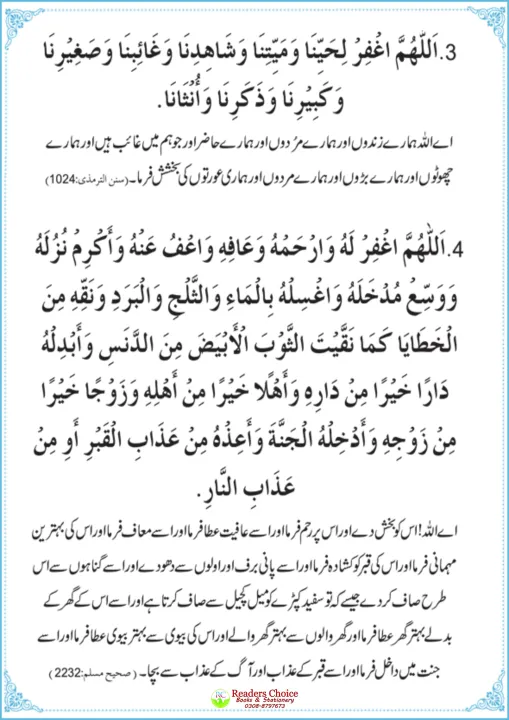 3.اَللّٰهُمَّ اغْفِرْ لِحَيِّنَا وَمَيِّتِنَا وَشَاهِدِنَا وَغَائِبِنَا وَصَغِيْرِنَا
وَكَبِيْرِنَا وَذَكَرِنَا وَأُنْثَانَا.
اے اللہ ہمارے زندوں اور ہمارے مردوں اور ہمارے حاضر اور جو ہم میں غائب ہیں اور ہمارے
چھوٹوں اور ہمارے بڑوں اور ہمارے مردوں اور ہماری عورتوں کی بخشش فرما۔(سنن الترمذی:1024)
4.اَللّٰهُمَّ اغْفِرْ لَهُ وَارْحَمْهُ وَعَافِهِ وَاعْفُ عَنْهُ وَأَكْرِمْ نُزُلَهُ
وَوَسِّعْ مُدْخَلَهُ وَاغْسِلْهُ بِالْمَاءِ وَالثَّلْجِ وَالْبَرَدِ وَنَقِّهِ مِنَ
الْخَطَايَا كَمَا نَقَّيْتَ الثَّوْبَ الْأَبْيَضَ مِنَ الدَّنَسِ وَأَبْدِلْهُ
دَارًا خَيْرًا مِنْ دَارِهِ وَأَهْلًا خَيْرًا مِنْ أَهْلِهِ وَزَوْجًا خَيْرًا
مِنْ زَوْجِهِ وَأَدْخِلْهُ الْجَنَّةَ وَأَعِذْهُ مِنْ عَذَابِ الْقَبْرِ أَو مِنْ
عَذَابِ النَّارِ.
اے اللہ! اس کو بخش دے اور اس پر رحم فرما اور اسے عافیت عطا فرما اور اسے معاف فرما اور اس کی بہترین
مہمانی فرما اور اس کی قبر کو کشادہ فرما اور اسے پانی برف اور اولوں سے دھودے اور اسے گناہوں سے اس
طرح صاف کردے جیسے کہ تو سفید کپڑے کو میل کچیل سے صاف کرتا ہے اور اسے اس کے گھر کے
بدلے بہتر گھر عطا فرما اور گھر والوں سے بہتر گھر والے اور اس کی بیوی سے بہتر بیوی عطا فرما اور اسے
جنت میں داخل فرما اور اسے قبر کے عذاب اور آگ کے عذاب سے بچا۔(صحیح مسلم:2232)
Readers Choice
Books & Stationery
0308-8797673